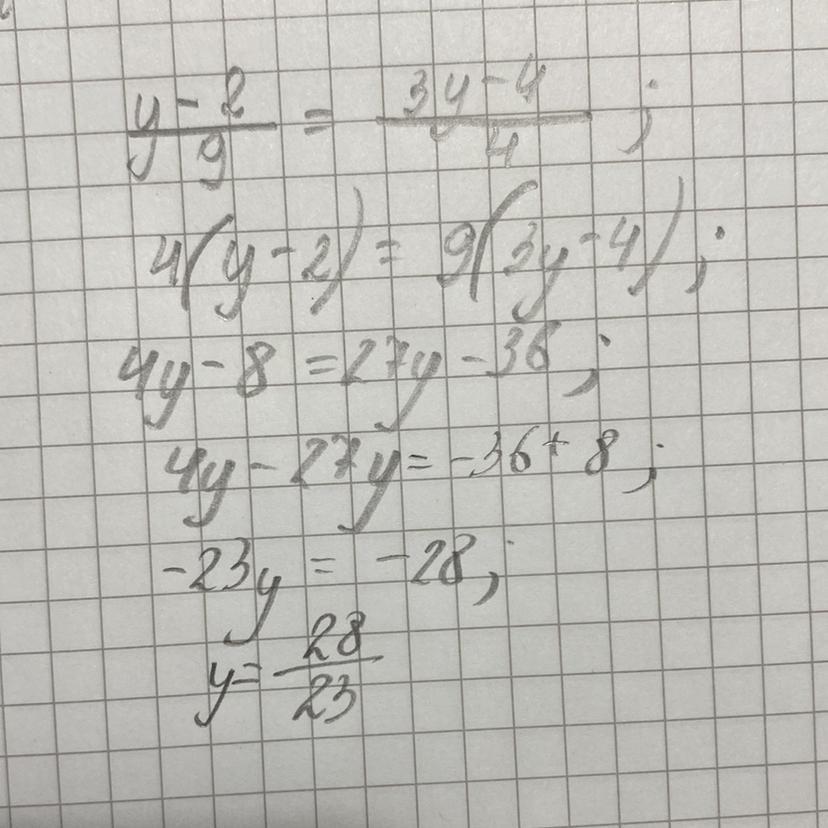 y - 2 / 9 = 3y - 4 / 4 ;
4(y - 2) = 9(3y - 4) ;
4y - 8 = 27y - 36 ;
4y - 27y = -36 + 8 ;
-23y = -28 ;
y = 28 / 23